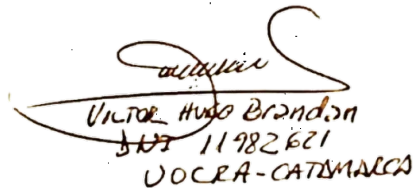 VICTOR HUGO Brandan
DNI 11982621
UOCRA-CATAMARCA